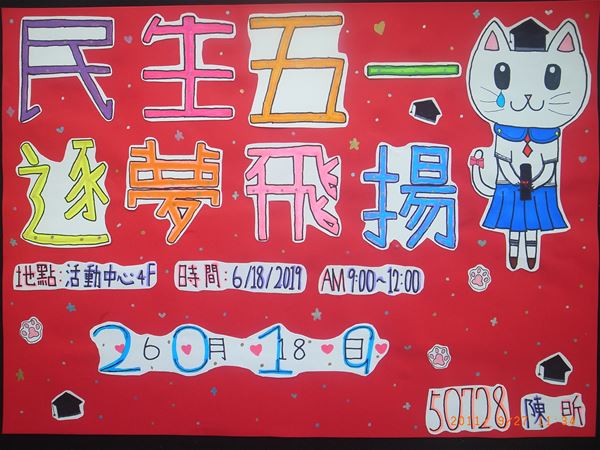 民生五一
逐夢飛揚
地點:活動中心4F 時間:6/18/2019 AM9:00~12:00
2019
6月18日
50728 陳昕